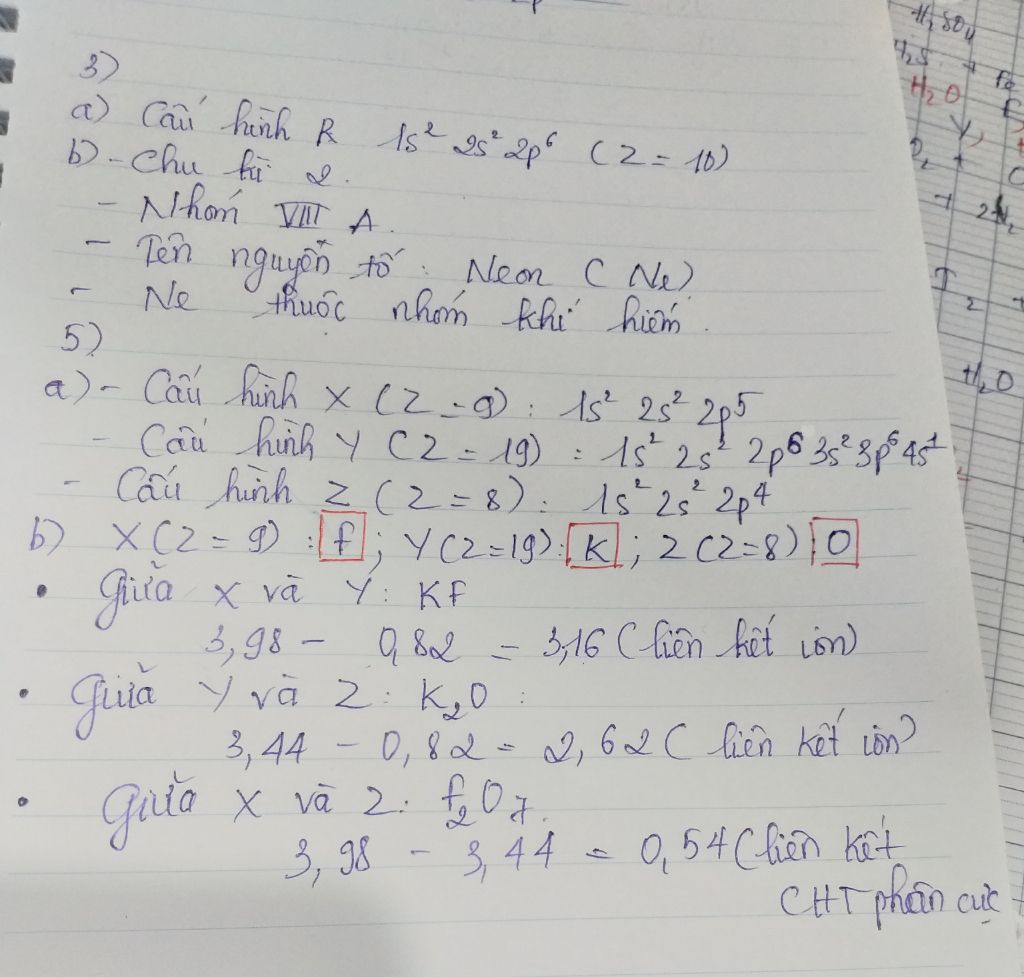 3)
a) Cấu hình R 1s² 2s² 2p⁶ (Z = 10)
b) - Chu kì 2.
- Nhóm VIII A.
- Tên nguyên tố : Neon (Ne)
- Ne thuộc nhóm khí hiếm.
5)
a) - Cấu hình X (Z = 9) : 1s² 2s² 2p⁵
- Cấu hình Y (Z = 19) : 1s² 2s² 2p⁶ 3s² 3p⁶ 4s¹
- Cấu hình Z (Z = 8) : 1s² 2s² 2p⁴
b) X (Z = 9) : F ; Y (Z = 19) : K ; Z (Z = 8) O
• Giữa X và Y : KF
3,98 - 0,82 = 3,16 (liên kết ion)
• Giữa Y và Z : K₂O :
3,44 - 0,82 = 2,62 (liên kết ion)
• Giữa X và Z : F₂O₇.
3,98 - 3,44 = 0,54 (liên kết
CHT phân cực
H₂SO₄
H₂S +
H₂O
2N₂
H₂O